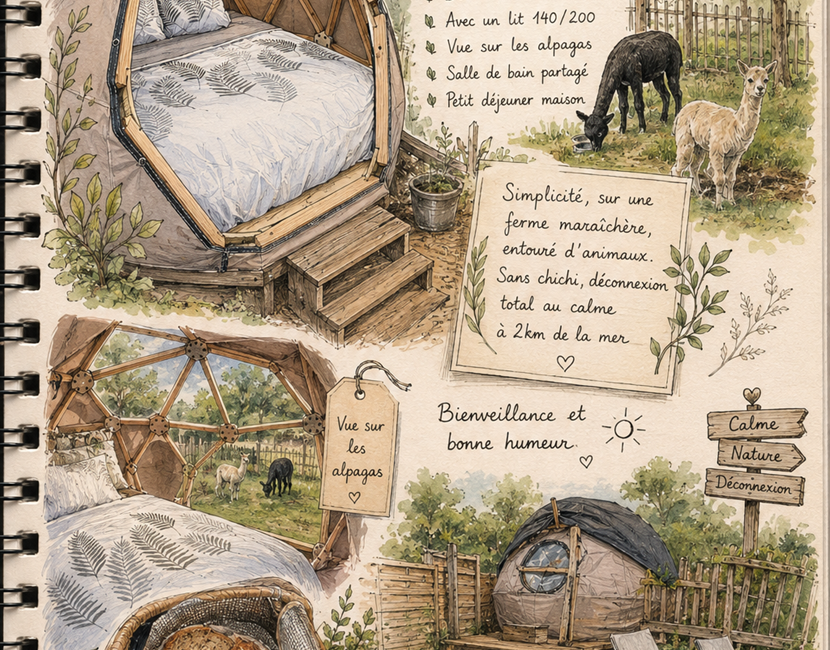 Avec un lit 140/200
Vue sur les alpagas
Salle de bain partagé
Petit déjeuner maison
Simplicité, sur une
ferme maraîchère,
entouré d'animaux.
Sans chichi, déconnexion
total au calme
à 2km de la mer
Vue sur
les
alpagas
Bienveillance et
bonne humeur.
Calme
Nature
Déconnexion